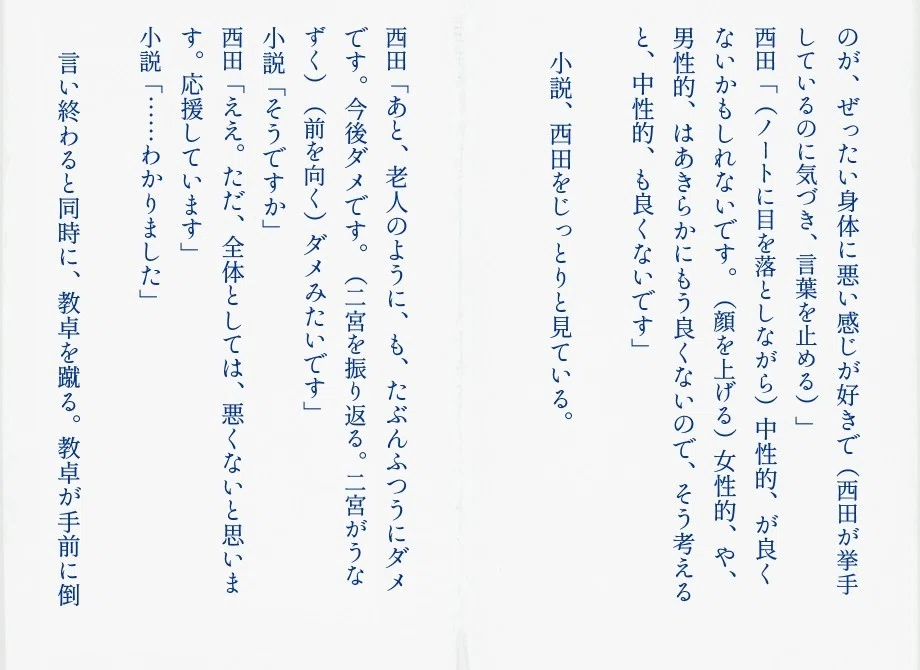 のが、ぜったい身体に悪い感じが好きで（西田が挙手
しているのに気づき、言葉を止める）」
西田「（ノートに目を落としながら）中性的、が良く
ないかもしれないです。（顔を上げる）女性的、や、
男性的、はあきらかにもう良くないので、そう考える
と、中性的、も良くないです」
小説、西田をじっとりと見ている。
西田「あと、老人のように、も、たぶんふつうにダメ
です。今後ダメです。（二宮を振り返る。二宮がうな
ずく）（前を向く）ダメみたいです」
小説「そうですか」
西田「ええ。ただ、全体としては、悪くないと思いま
す。応援しています」
小説「……わかりました」
言い終わると同時に、教卓を蹴る。教卓が手前に倒